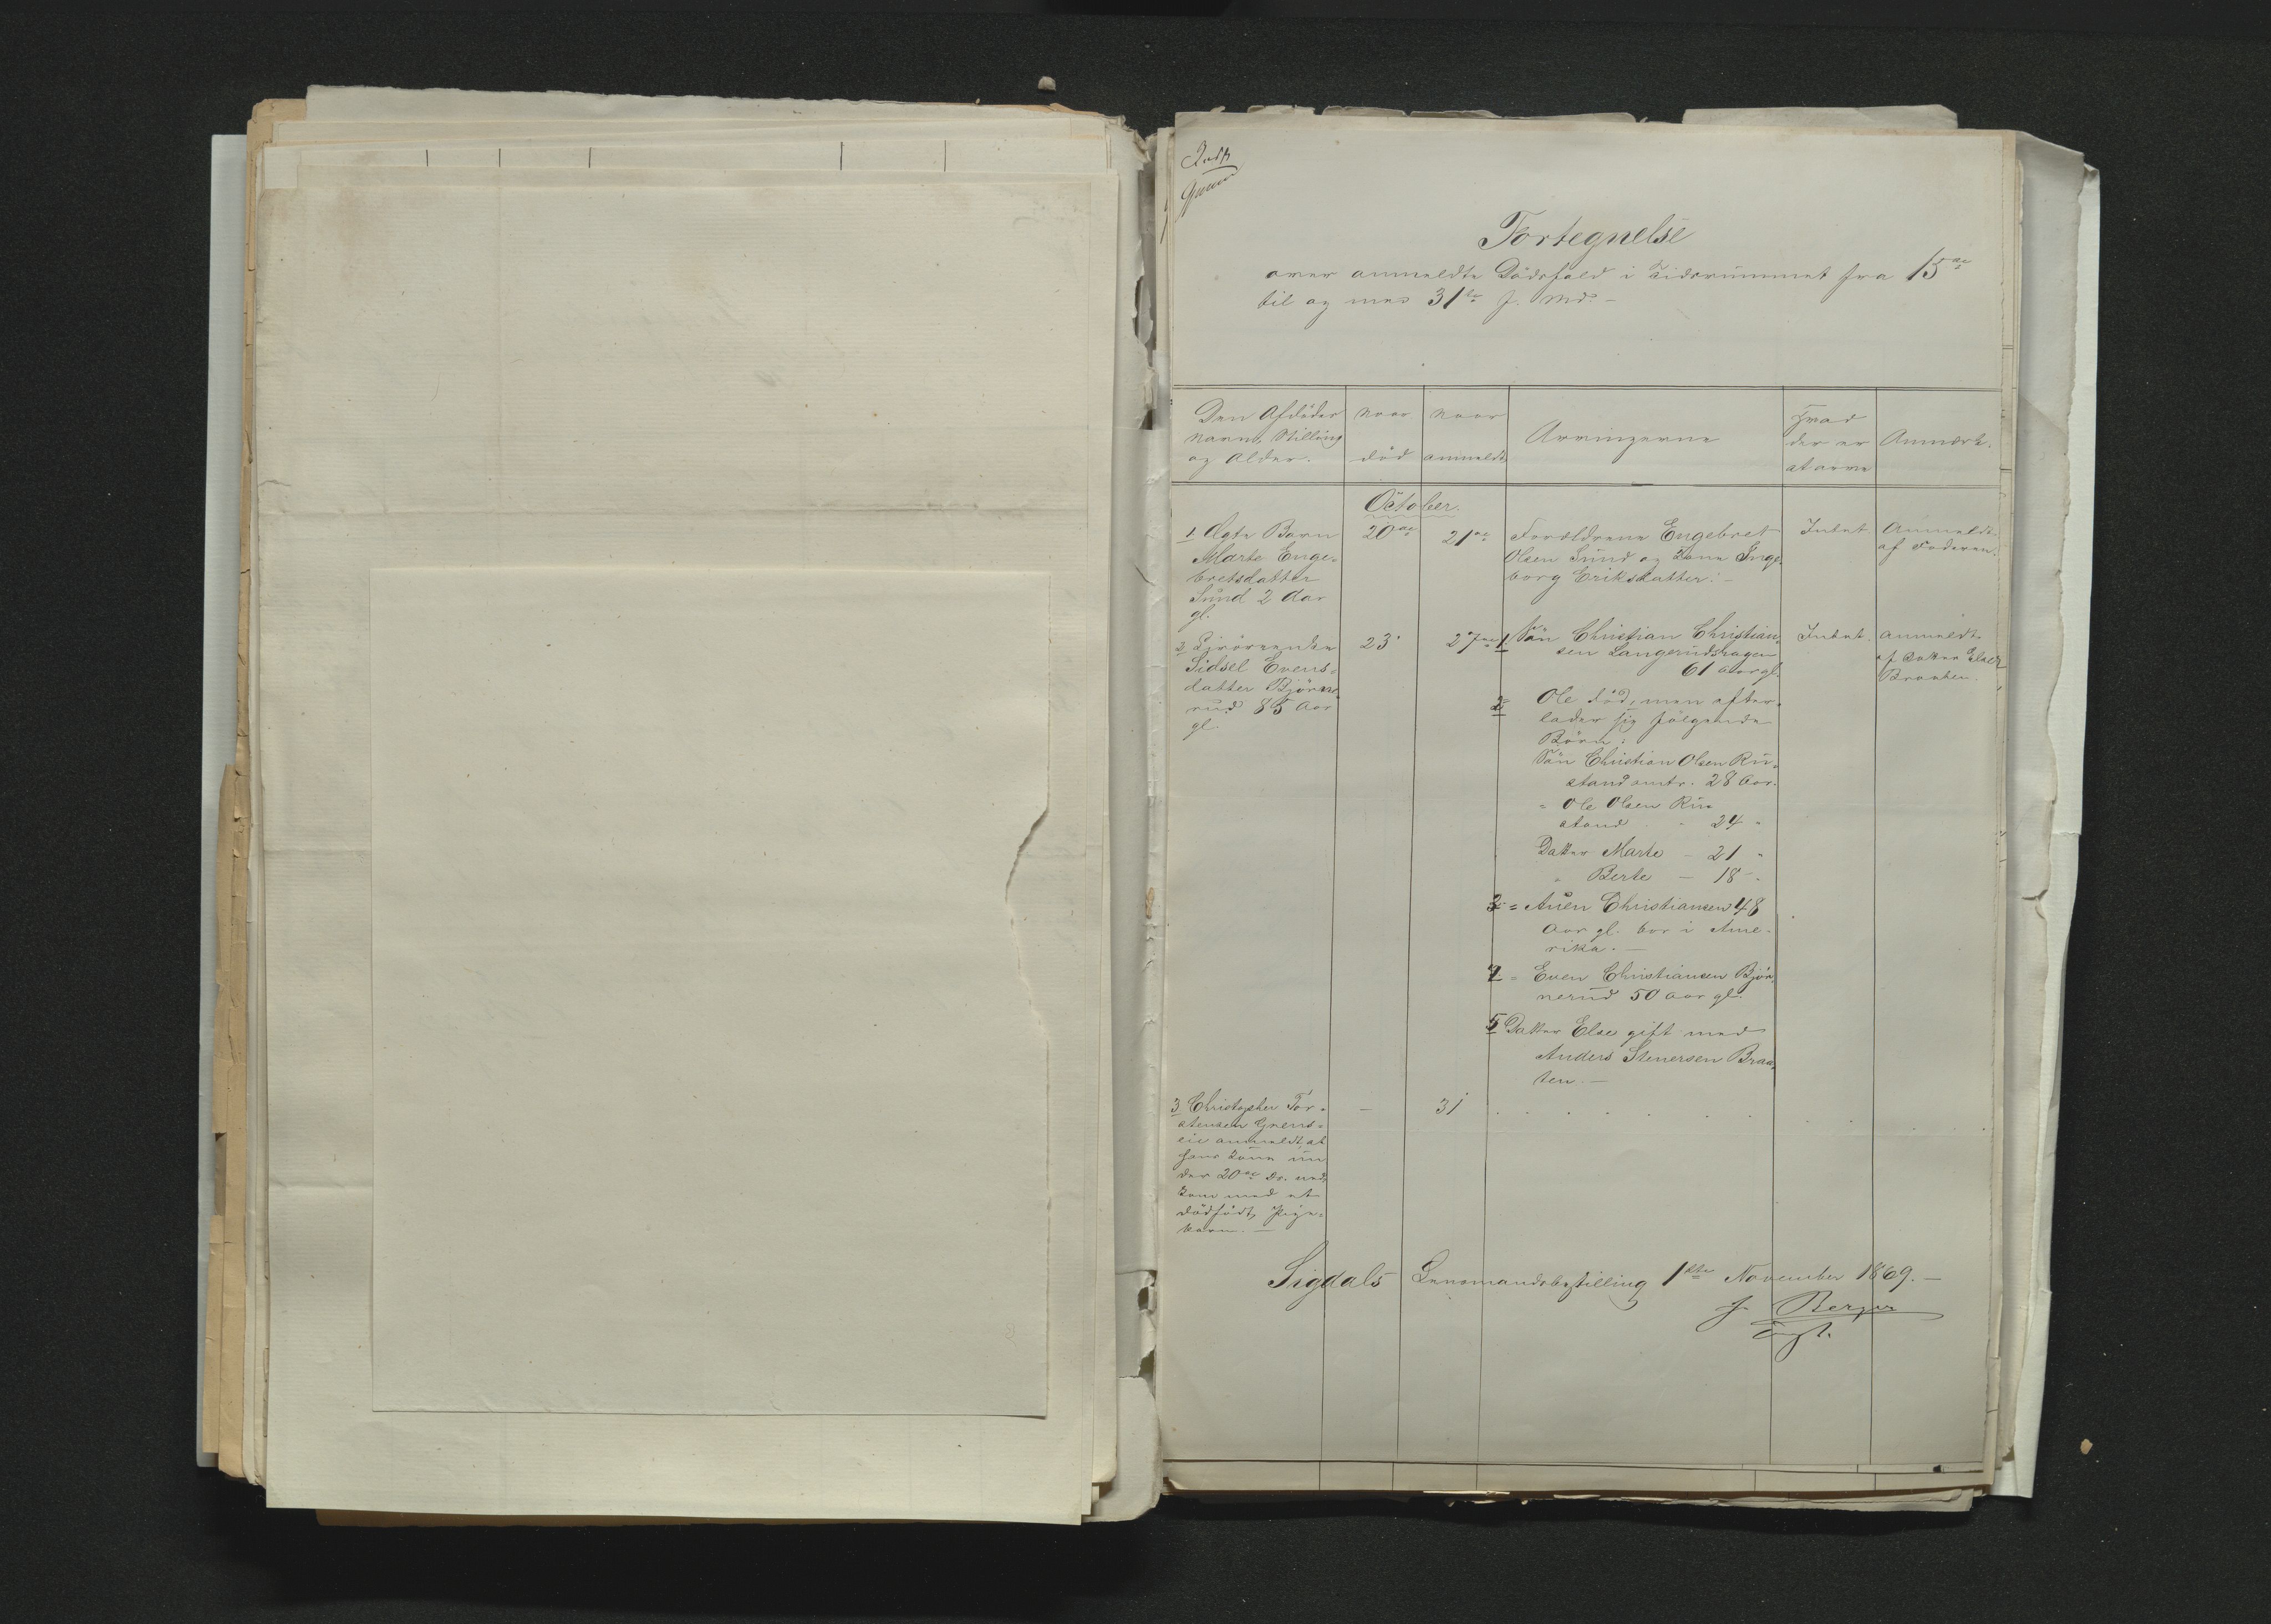 Fortegnelse
over anmeldte Dödsfald i Tidsrummet fra 15de
til og med 31te f. Md. –
Den Afdödes
Navn, Stilling
og Alder.
Naar
död
Naar
anmeldt
Arvingerne
Hvad
der er
at arve
Anmærk.
October.
1 Ægte Barn
Marte Enge-
bretsdatter
Sund 2 Aar
gl.
20de
21de
Forældrene Engebret
Olsen Sund og Kone Inge-
borg Eriksdatter. –
Intet
Anmeldt
af Faderen.
2
Sidsel Evens-
datter Björne-
rud 85 Aar
gl.
23
27de
1. Sön Christian Christian-
sen Langerudshagen
61 Aar gl.
2 Ole död, men efter-
lader sig fölgende
Börn:
Sön Christian Olsen Ru-
stand omtr. 28 Aar.
" Ole Olsen Ru-
stand " 24 "
Datter Marte – 21 "
" Berte – 18 –.
3. = Auen Christiansen 48
Aar gl. bor i Ame-
rika. –
4. = Even Christiansen Björ-
nerud 50 Aar gl.
5 Datter Else gift med
Anders Stenersen Braa-
ten. –
Intet.
Anmeldt
af Datter Else
Braaten.
3 Christopher Tor-
stensen Grens-
eie anmeldt, at
hans Kone un
der 20de ds. ned-
kom med et
dödfödt Pige-
barn. –
–
31
Sigdals Lensmandsbestilling 1ste November 1869. –
J. Berger